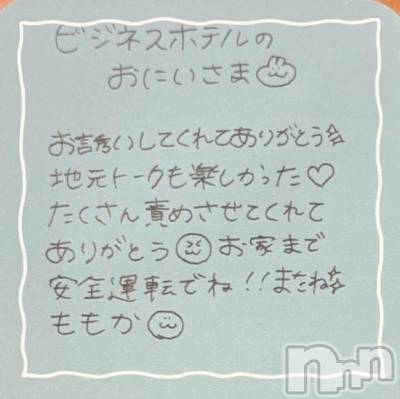 ビジネスホテルの
おにいさま
お誘いしてくれてありがとう
地元トークも楽しかった♡
たくさん責めさせてくれて
ありがとう お家まで
安全運転でね!!またね
ももか
nnn